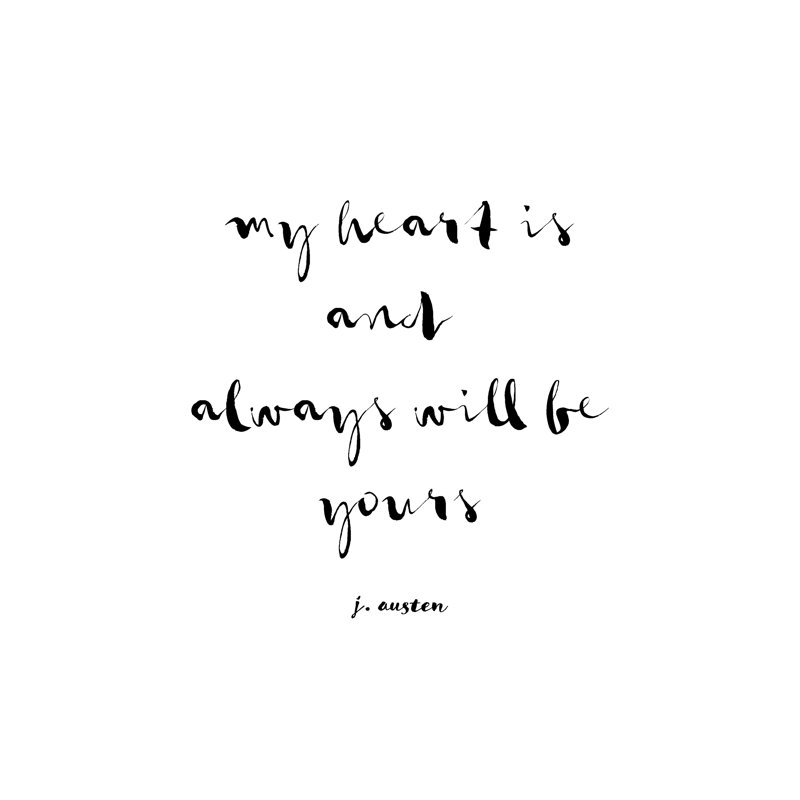 my heart is
and
always will be
yours
j. austen